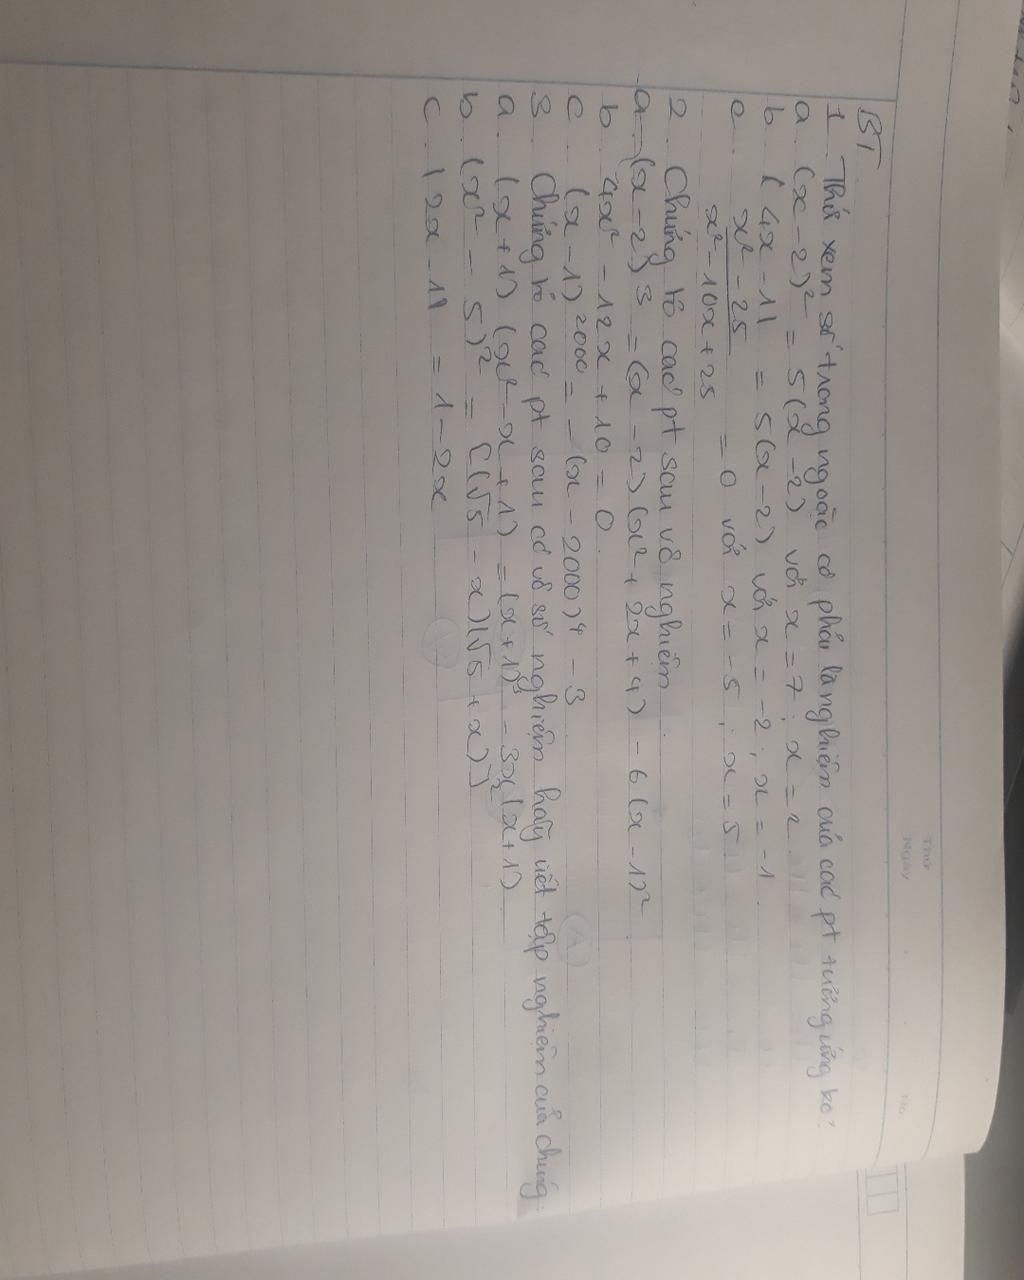 BT
1. Thử xem số trong ngoặc có phải là nghiệm của các pt tương ứng ko?
a. (x - 2)² = 5(x - 2) với x = 7; x = 2
b. |4x - 1| = 5(x - 2) với x = -2; x = -1
c. x² - 25 / x² - 10x + 25 = 0 với x = -5; x = 5
2. Chứng tỏ các pt sau vô nghiệm
a. (x - 2)³ = (x - 2)(x² + 2x + 4) - 6(x - 1)²
b. 4x² - 12x + 10 = 0.
c. (x - 1)²⁰⁰⁰ = -(x - 2000)⁴ - 3
3. Chứng tỏ các pt sau có vô số nghiệm hãy viết tập nghiệm của chúng.
a. (x + 1)(x² - x + 1) = (x + 1)³ - 3x(x + 1)
b. (x² - 5)² = [(√5 - x)(√5 + x)]²
c. |2x - 1| = 1 - 2x
Thứ
Ngày
No.